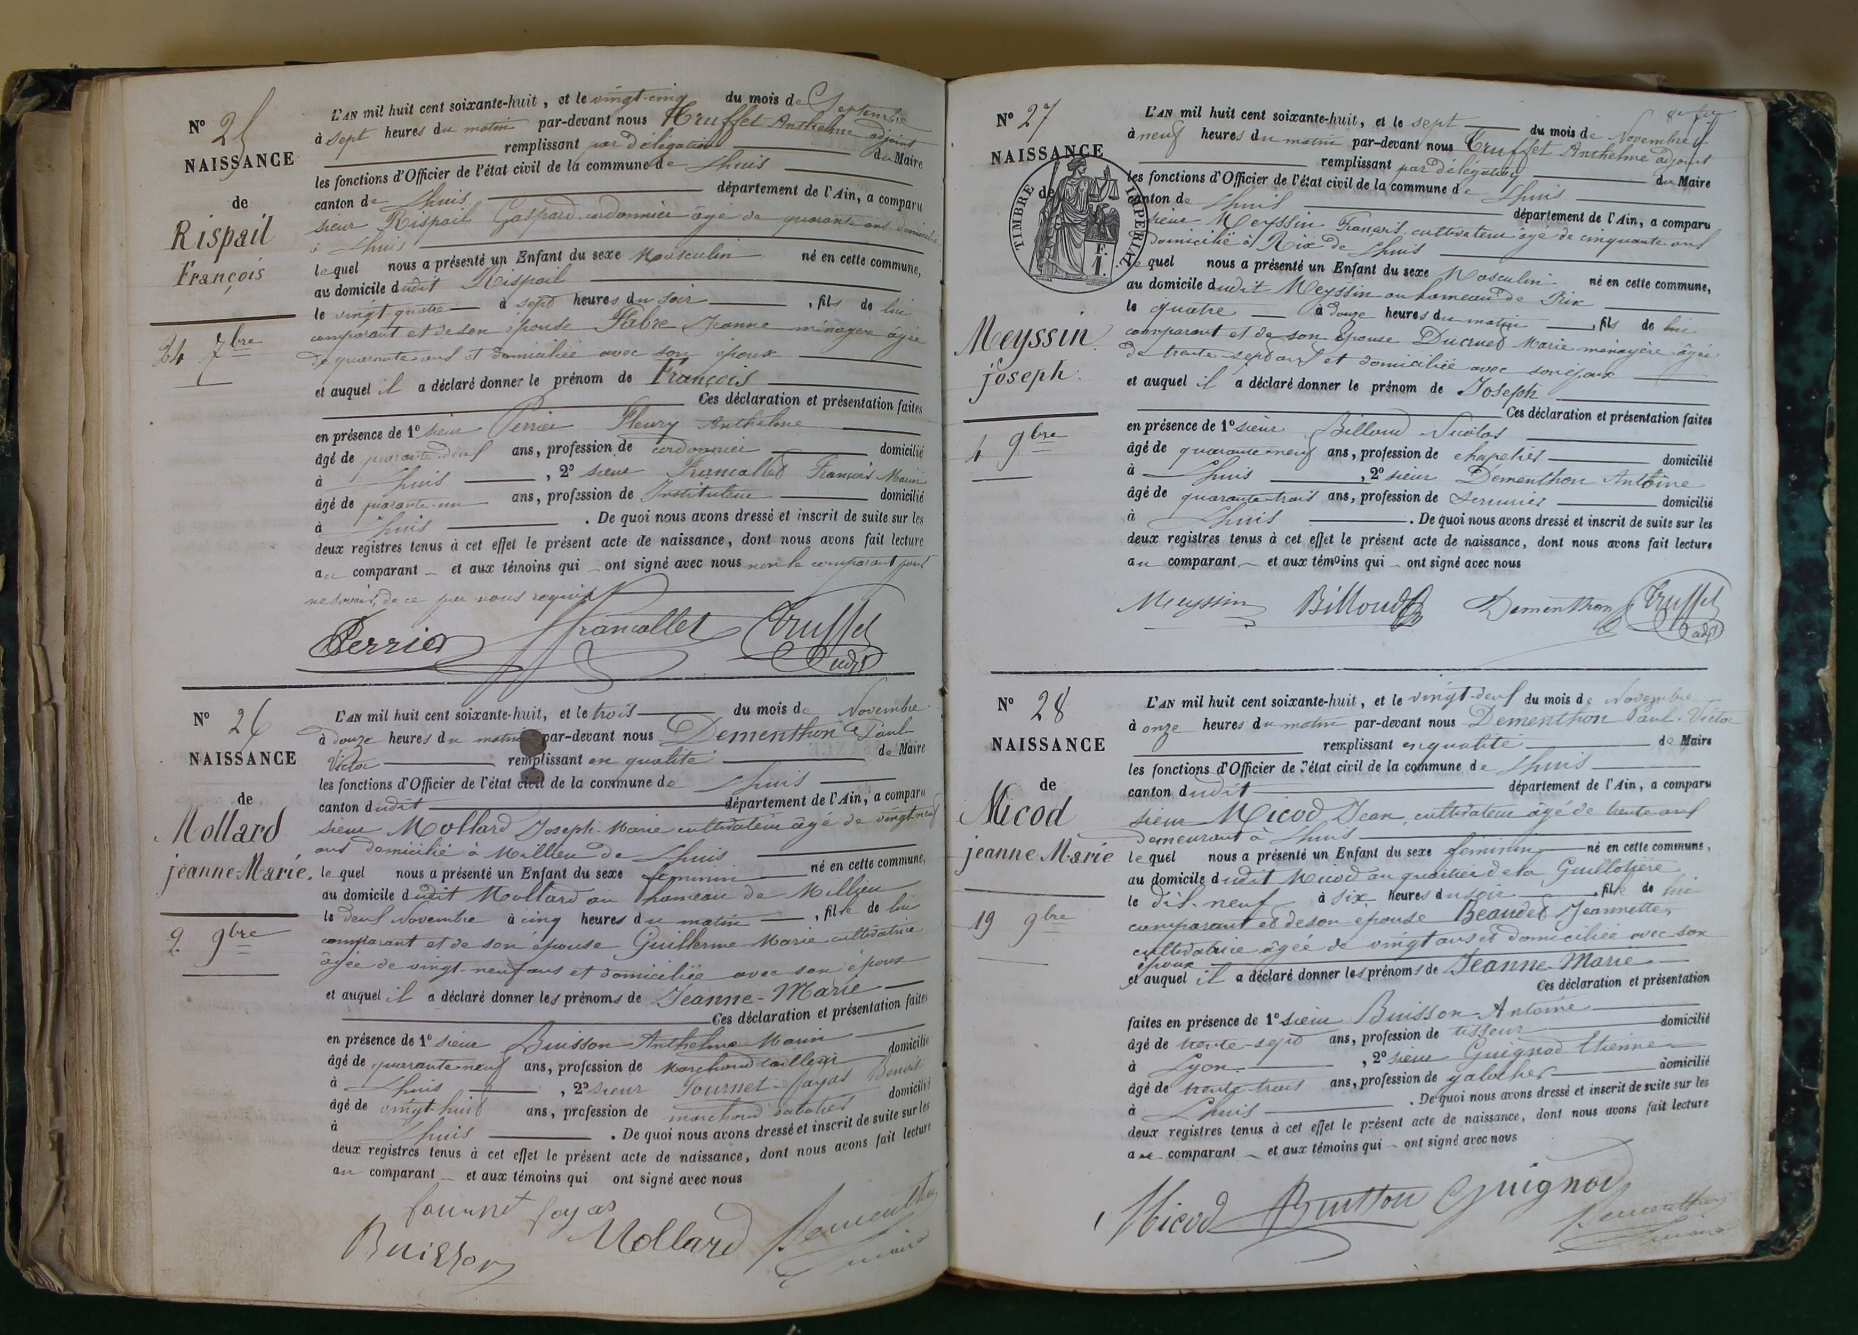 N° 25
NAISSANCE
de
Rispail
François
24 7bre
L'AN mil huit cent soixante-huit, et le vingt-cinq du mois de Septembre
à sept heures du matin par-devant nous Truffet Anthelme adjoint
remplissant par délégation du Maire
les fonctions d'Officier de l'état civil de la commune de Lhuis
canton de Lhuis département de l'Ain, a comparu
sieur Rispail Gaspard cordonnier âgé de quarante ans domicilié
à Lhuis
lequel nous a présenté un Enfant du sexe Masculin né en cette commune,
au domicile dudit Rispail
le vingt quatre à sept heures du soir, fils de lui
comparant et de son épouse Fabre Jeanne ménagère âgée
de quarante ans et domiciliée avec son époux
et auquel il a déclaré donner le prénom de François
Ces déclaration et présentation faites
en présence de 1° sieur Perrier Fleury Anthelme
âgé de quarante-deux ans, profession de cordonnier domicilié
à Lhuis, 2° sieur Francallet François Marin
âgé de quarante-un ans, profession de Instituteur domicilié
à Lhuis. De quoi nous avons dressé et inscrit de suite sur les
deux registres tenus à cet effet le présent acte de naissance, dont nous avons fait lecture
au comparant et aux témoins qui ont signé avec nous non le comparant pour
ne savoir, de ce par nous requis
Perrier Francallet Truffet adjt
N° 26
NAISSANCE
de
Mollard
jeanne Marie.
2 9bre
L'AN mil huit cent soixante-huit, et le trois du mois de Novembre
à douze heures du matin par-devant nous Dementhon Paul
Victor remplissant en qualité de Maire
les fonctions d'Officier de l'état civil de la commune de Lhuis
canton dudit département de l'Ain, a comparu
sieur Mollard Joseph-Marie cultivateur âgé de vingt neuf
ans domicilié à Millieu de Lhuis
lequel nous a présenté un Enfant du sexe féminin né en cette commune,
au domicile dudit Mollard au hameau de Millieu
le deux Novembre à cinq heures du matin, fille de lui
comparant et de son épouse Guillerme Marie cultivatrice
âgée de vingt-neuf ans et domiciliée avec son époux
et auquel il a déclaré donner les prénoms de Jeanne-Marie
Ces déclaration et présentation faites
en présence de 1° sieur Buisson Anthelme Marin
âgé de quarante neuf ans, profession de Marchand tailleur domicilié
à Lhuis, 2° sieur Fournet-Fayas Benoit
âgé de vingt-huit ans, profession de marchand sabotier domicilié
à Lhuis. De quoi nous avons dressé et inscrit de suite sur les
deux registres tenus à cet effet le présent acte de naissance, dont nous avons fait lecture
au comparant et aux témoins qui ont signé avec nous
fournet fayas
Buisson Mollard Dementhon
maire
N° 27
NAISSANCE
de
TIMBRE IMPERIAL
F.
1.
Meyssin
joseph.
4 9bre
L'AN mil huit cent soixante-huit, et le sept du mois de Novembre
à neuf heures du matin par-devant nous Truffet Anthelme adjoint
remplissant par délégation du Maire
les fonctions d'Officier de l'état civil de la commune de Lhuis
canton de Lhuis département de l'Ain, a comparu
sieur Meyssin François, cultivateur âgé de cinquante ans
domicilié à Rix de Lhuis
lequel nous a présenté un Enfant du sexe Masculin né en cette commune,
au domicile dudit Meyssin au hameau de Rix
le quatre à douze heures du matin, fils de lui
comparant et de son Epouse Ducruet Marie ménagère âgée
de trente-sept ans et domiciliée avec son époux
et auquel il a déclaré donner le prénom de Joseph
Ces déclaration et présentation faites
en présence de 1° sieur Billoud Nicolas
âgé de quarante neuf ans, profession de chapelier domicilié
à Lhuis, 2° sieur Dementhon Antoine
âgé de quarante-trois ans, profession de serrurier domicilié
à Lhuis. De quoi nous avons dressé et inscrit de suite sur les
deux registres tenus à cet effet le présent acte de naissance, dont nous avons fait lecture
au comparant et aux témoins qui ont signé avec nous
Meyssin Billoud Dementhon Truffet
adjt
N° 28
NAISSANCE
de
Micod
jeanne Marie
19 9bre
L'AN mil huit cent soixante-huit, et le vingt-deux du mois de Novembre
à onze heures du matin par-devant nous Dementhon Paul-Victor
remplissant en qualité de Maire
les fonctions d'Officier de l'état civil de la commune de Lhuis
canton dudit département de l'Ain, a comparu
sieur Micod Jean, cultivateur âgé de trente ans
demeurant à Lhuis
lequel nous a présenté un Enfant du sexe féminin né en cette commune,
au domicile dudit Micod au quartier de la Guillotière
le dix-neuf à six heures du soir, fille de lui
comparant et de son épouse Beaudet Jeannette,
cultivatrice âgée de vingt ans et domiciliée avec son
époux
et auquel il a déclaré donner les prénoms de Jeanne-Marie
Ces déclaration et présentation
faites en présence de 1° sieur Buisson Antoine
âgé de trente-sept ans, profession de tisseur domicilié
à Lyon, 2° sieur Guignod Etienne
âgé de trente-trois ans, profession de galochier domicilié
à Lhuis. De quoi nous avons dressé et inscrit de suite sur les
deux registres tenus à cet effet le présent acte de naissance, dont nous avons fait lecture
au comparant et aux témoins qui ont signé avec nous
Micod Buisson Guignod Dementhon
maire